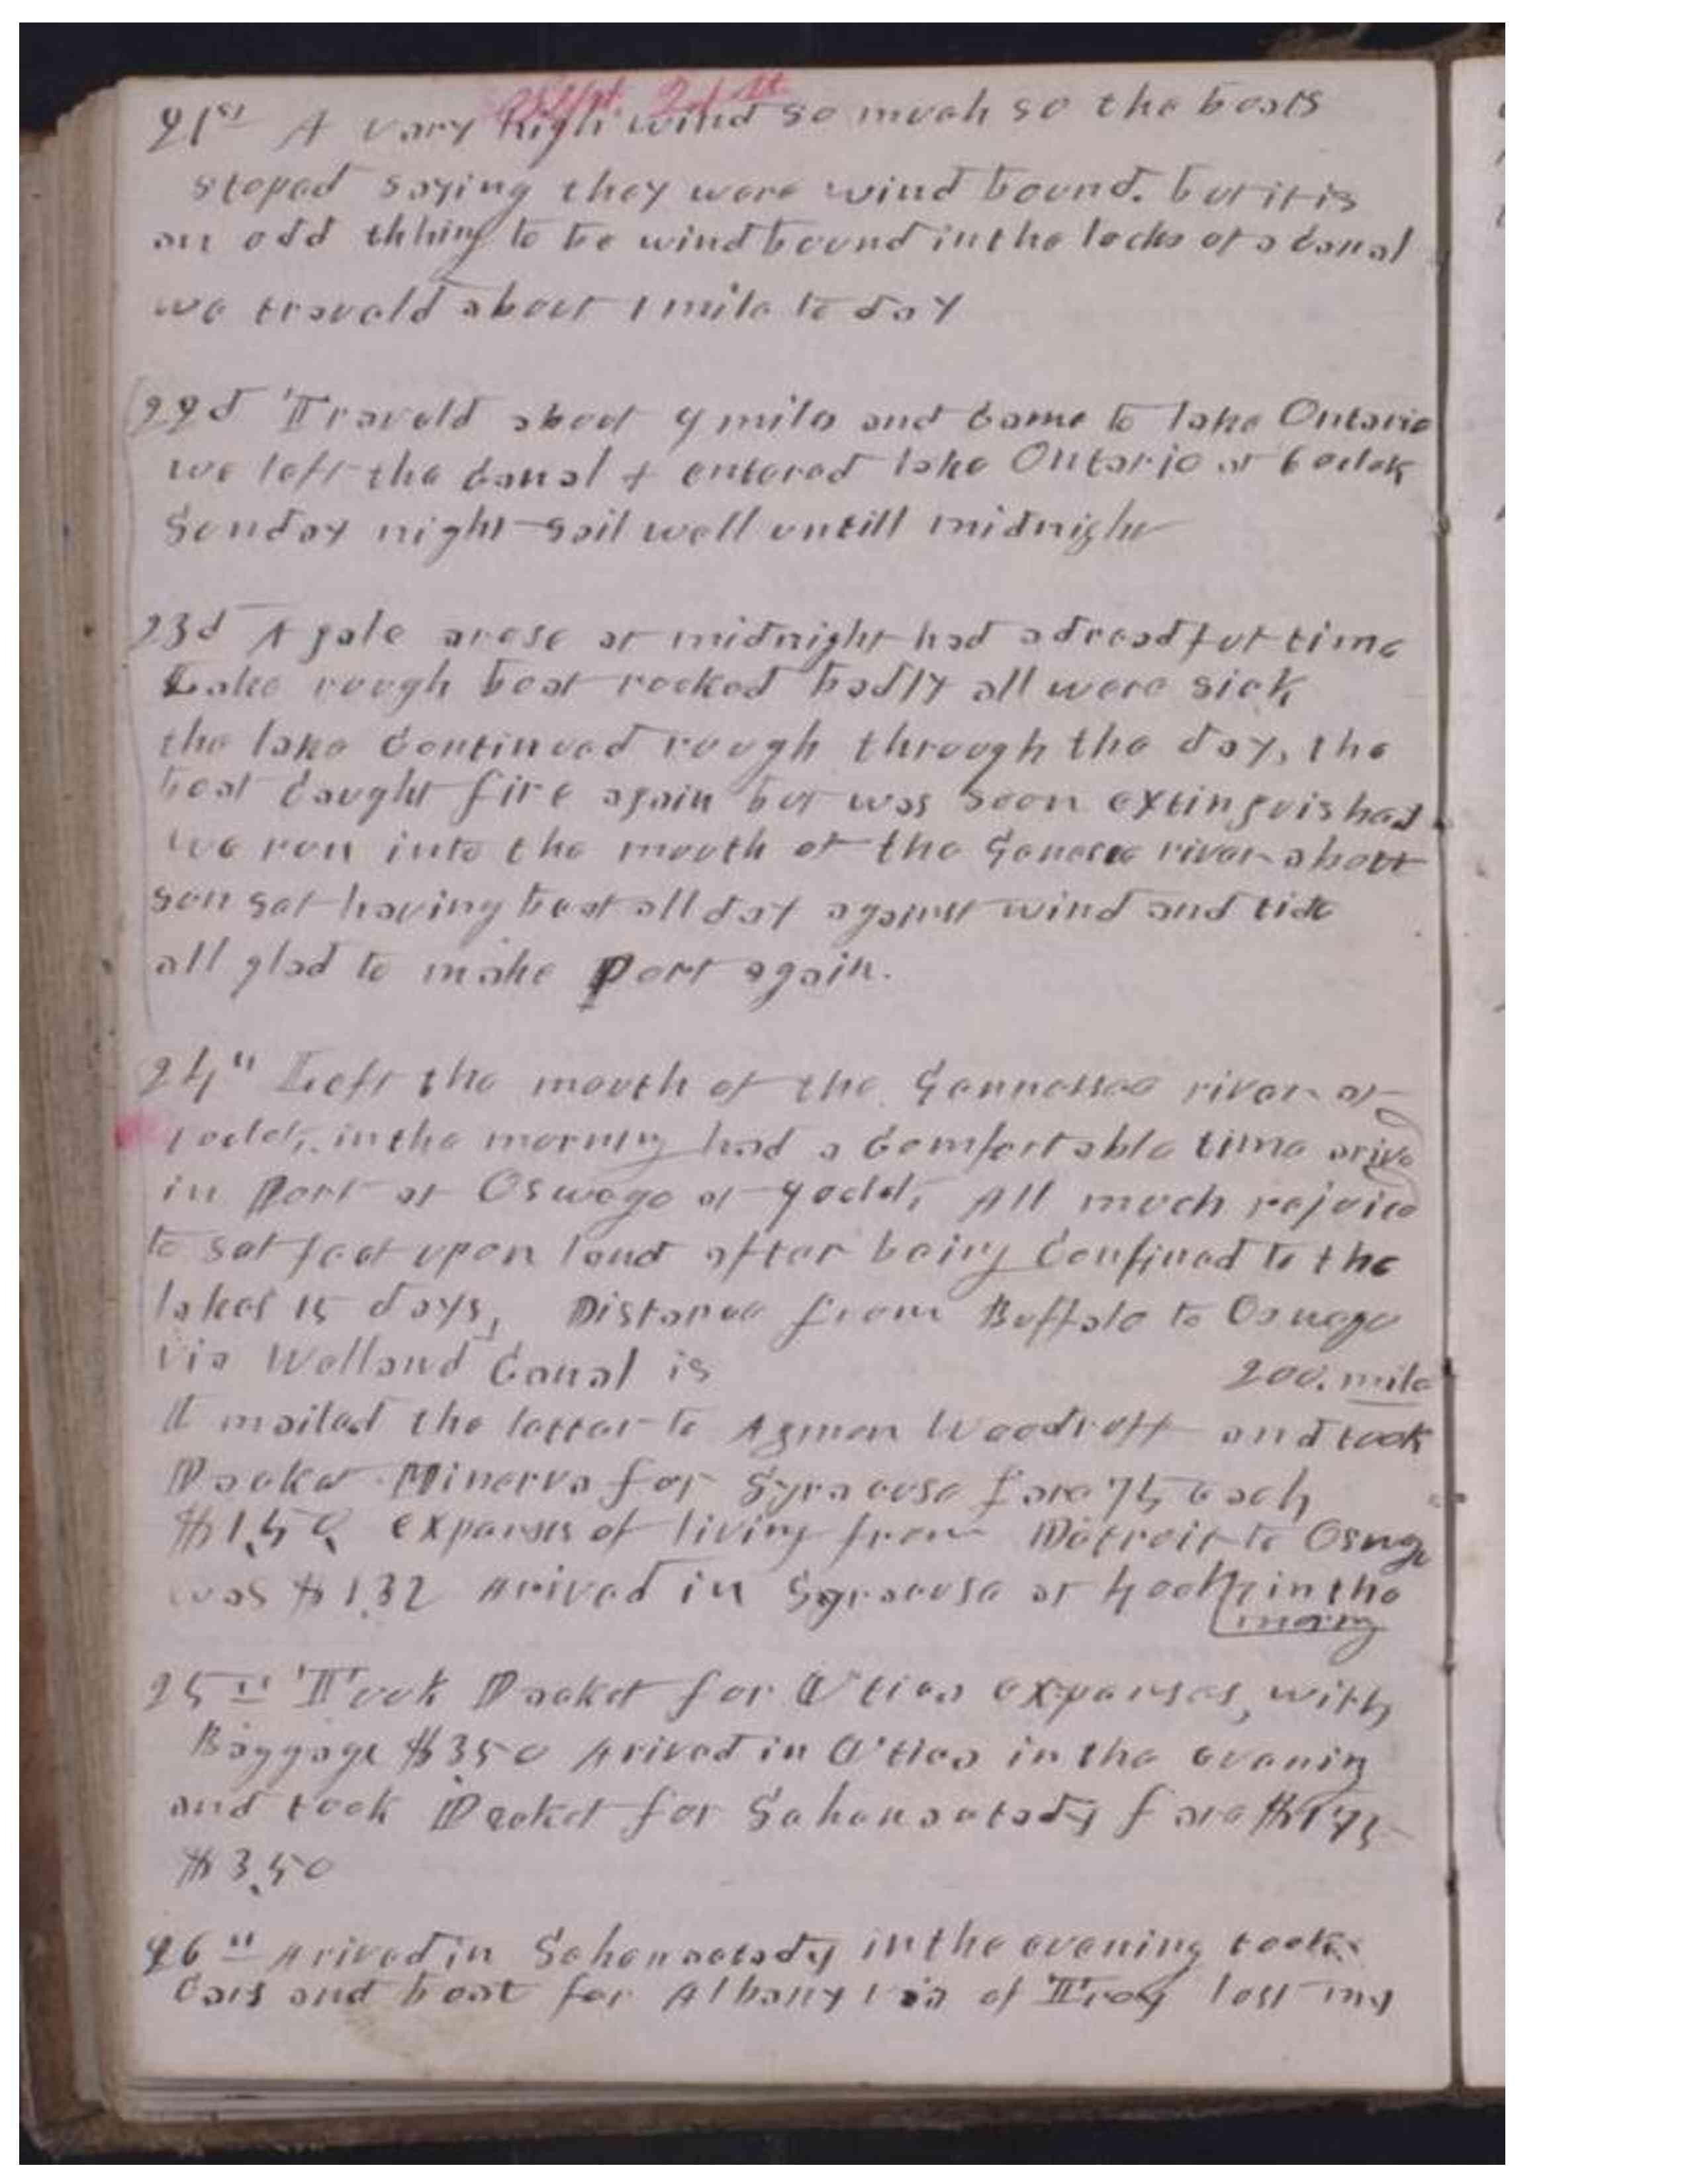 Sept. 21st
21st A vary high wind so much so the boats
stoped saying they were wind bound. but it is
an odd thhing to be wind bound in the locks of a Canal
we traveld about 1 mile to day
22d Traveld about 4 mile and Came to lake Ontario
we left the Canal & entered lake Ontario at 6 oclok
Sunday night Sail well untill midnight
23d A gale arose at midnight had a dreadful time
Lake rough boat rocked badly all were sick
the lake Continued rough through the day, the
boat Caught fire again but was soon extinguished
we run into the mouth of the Genesee river about
sun set having beat all day against wind and tide
all glad to make port again.
24" Left the mouth of the Gennessee river at
1 oclok, in the morning had a Comfortable time arive
in Port at Oswego at 9 oclok, All much rejoice
to set feet upon land after being Confined to the
lakes 15 days, Distance from Buffalo to Oswego
via Welland Canal is 200. mile
I mailed the letter to Azmon Woodruff and took
Packet Minerva for Syracuse fare 75 each
$1,50, expenses of living from Detroit to Oswg
was $1.32 Arived in Syracuse at 4 oclk in the
morng
25" Took Packet for Utica expenses, with
Baggage $3,50 Arived in Utica in the evening
and took Packet for Sahenactady fare $1,75
$3,50
26" Arived in Sahenactady in the evening took
Cars and boat for Albany via of Troy lost my